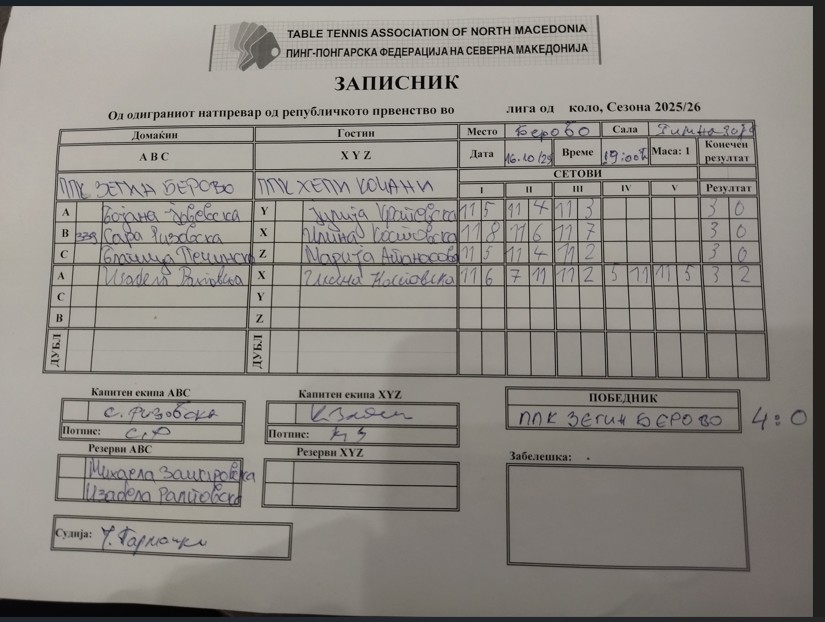 TABLE TENNIS ASSOCIATION OF NORTH MACEDONIA
ПИНГ-ПОНГАРСКА ФЕДЕРАЦИЈА НА СЕВЕРНА МАКЕДОНИЈА
ЗАПИСНИК
Од одиграниот натпревар од републичкото првенство во лига од коло, Сезона 2025/26
Домаќин Гостин Место Берово Сала
A B C X Y Z Дата 16.10/25 Време 19:00h Маса: 1 Конечен резултат
СЕТОВИ
ППК ЗЕГИН БЕРОВО ППК ХЕПИ КОЧАНИ I II III IV V Резултат
A Y 11 5 11 4 11 3 3 0
B 339 Сара Ризовска X Илина Костовска 11 8 11 6 11 7 3 0
C Z Марија Атанасова 11 5 11 4 11 2 3 0
A Изабела Раптовска X Костовска 11 6 7 11 11 2 5 11 11 5 3 2
C Y
B Z
ДУБЛ ДУБЛ
Капитен екипа ABC Капитен екипа XYZ ПОБЕДНИК
С. Ризовска ППК ЗЕГИН БЕРОВО 4:0
Потпис: С.Р Потпис:
Резерви ABC Резерви XYZ Забелешка:
Михаела
Изабела Раптовска
Судија: